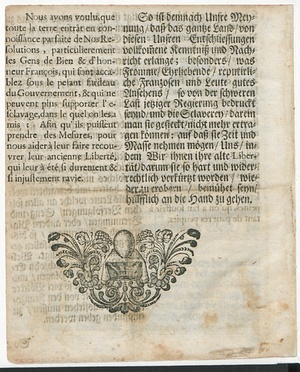 Nous avons voulu que
toute la terre entrât en con-
noissance parfaite de Nos Re-
solutions, particulierement
les Gens de Bien & d'hon-
neur François, qui sont acca-
blez sous le pesant fardeau
du Gouvernement, & qui ne
peuvent plus supporter l'e-
sclavage, dans le quel on les a
mis: Afin qu'ils puissent
prendre des Mesures, pour
nous aider à leur faire recou-
vrer leur ancienne Liberté,
qui leur à été si durement &
si injustement ravie.
So ist demnach Unsre Mey-
nung/ daß das gantze Land/ von
diesen Unsren Entschliessungen
vollkomene Kenntniß und Nach-
richt erlange; besonders/ was
Fromme/ Ehrliebende/ reputir-
liche Frantzosen und Leute gutes
Ansehens/ so von der schweren
Last jetziger Regierung bedruckt
seynd/ und die Sclaverey/ darein
man sie gesteckt/ nicht mehr ertra-
gen können: auf daß sie Zeit und
Masse nehmen mögen/ Uns/ in-
dem Wir ihnen ihre alte Liber-
tät/ darum sie so hart und wider-
rechtlich verkürtzt worden/ wie-
der zu erobern/ bemühet seyn/
hülfflich an die Hand zu gehen.